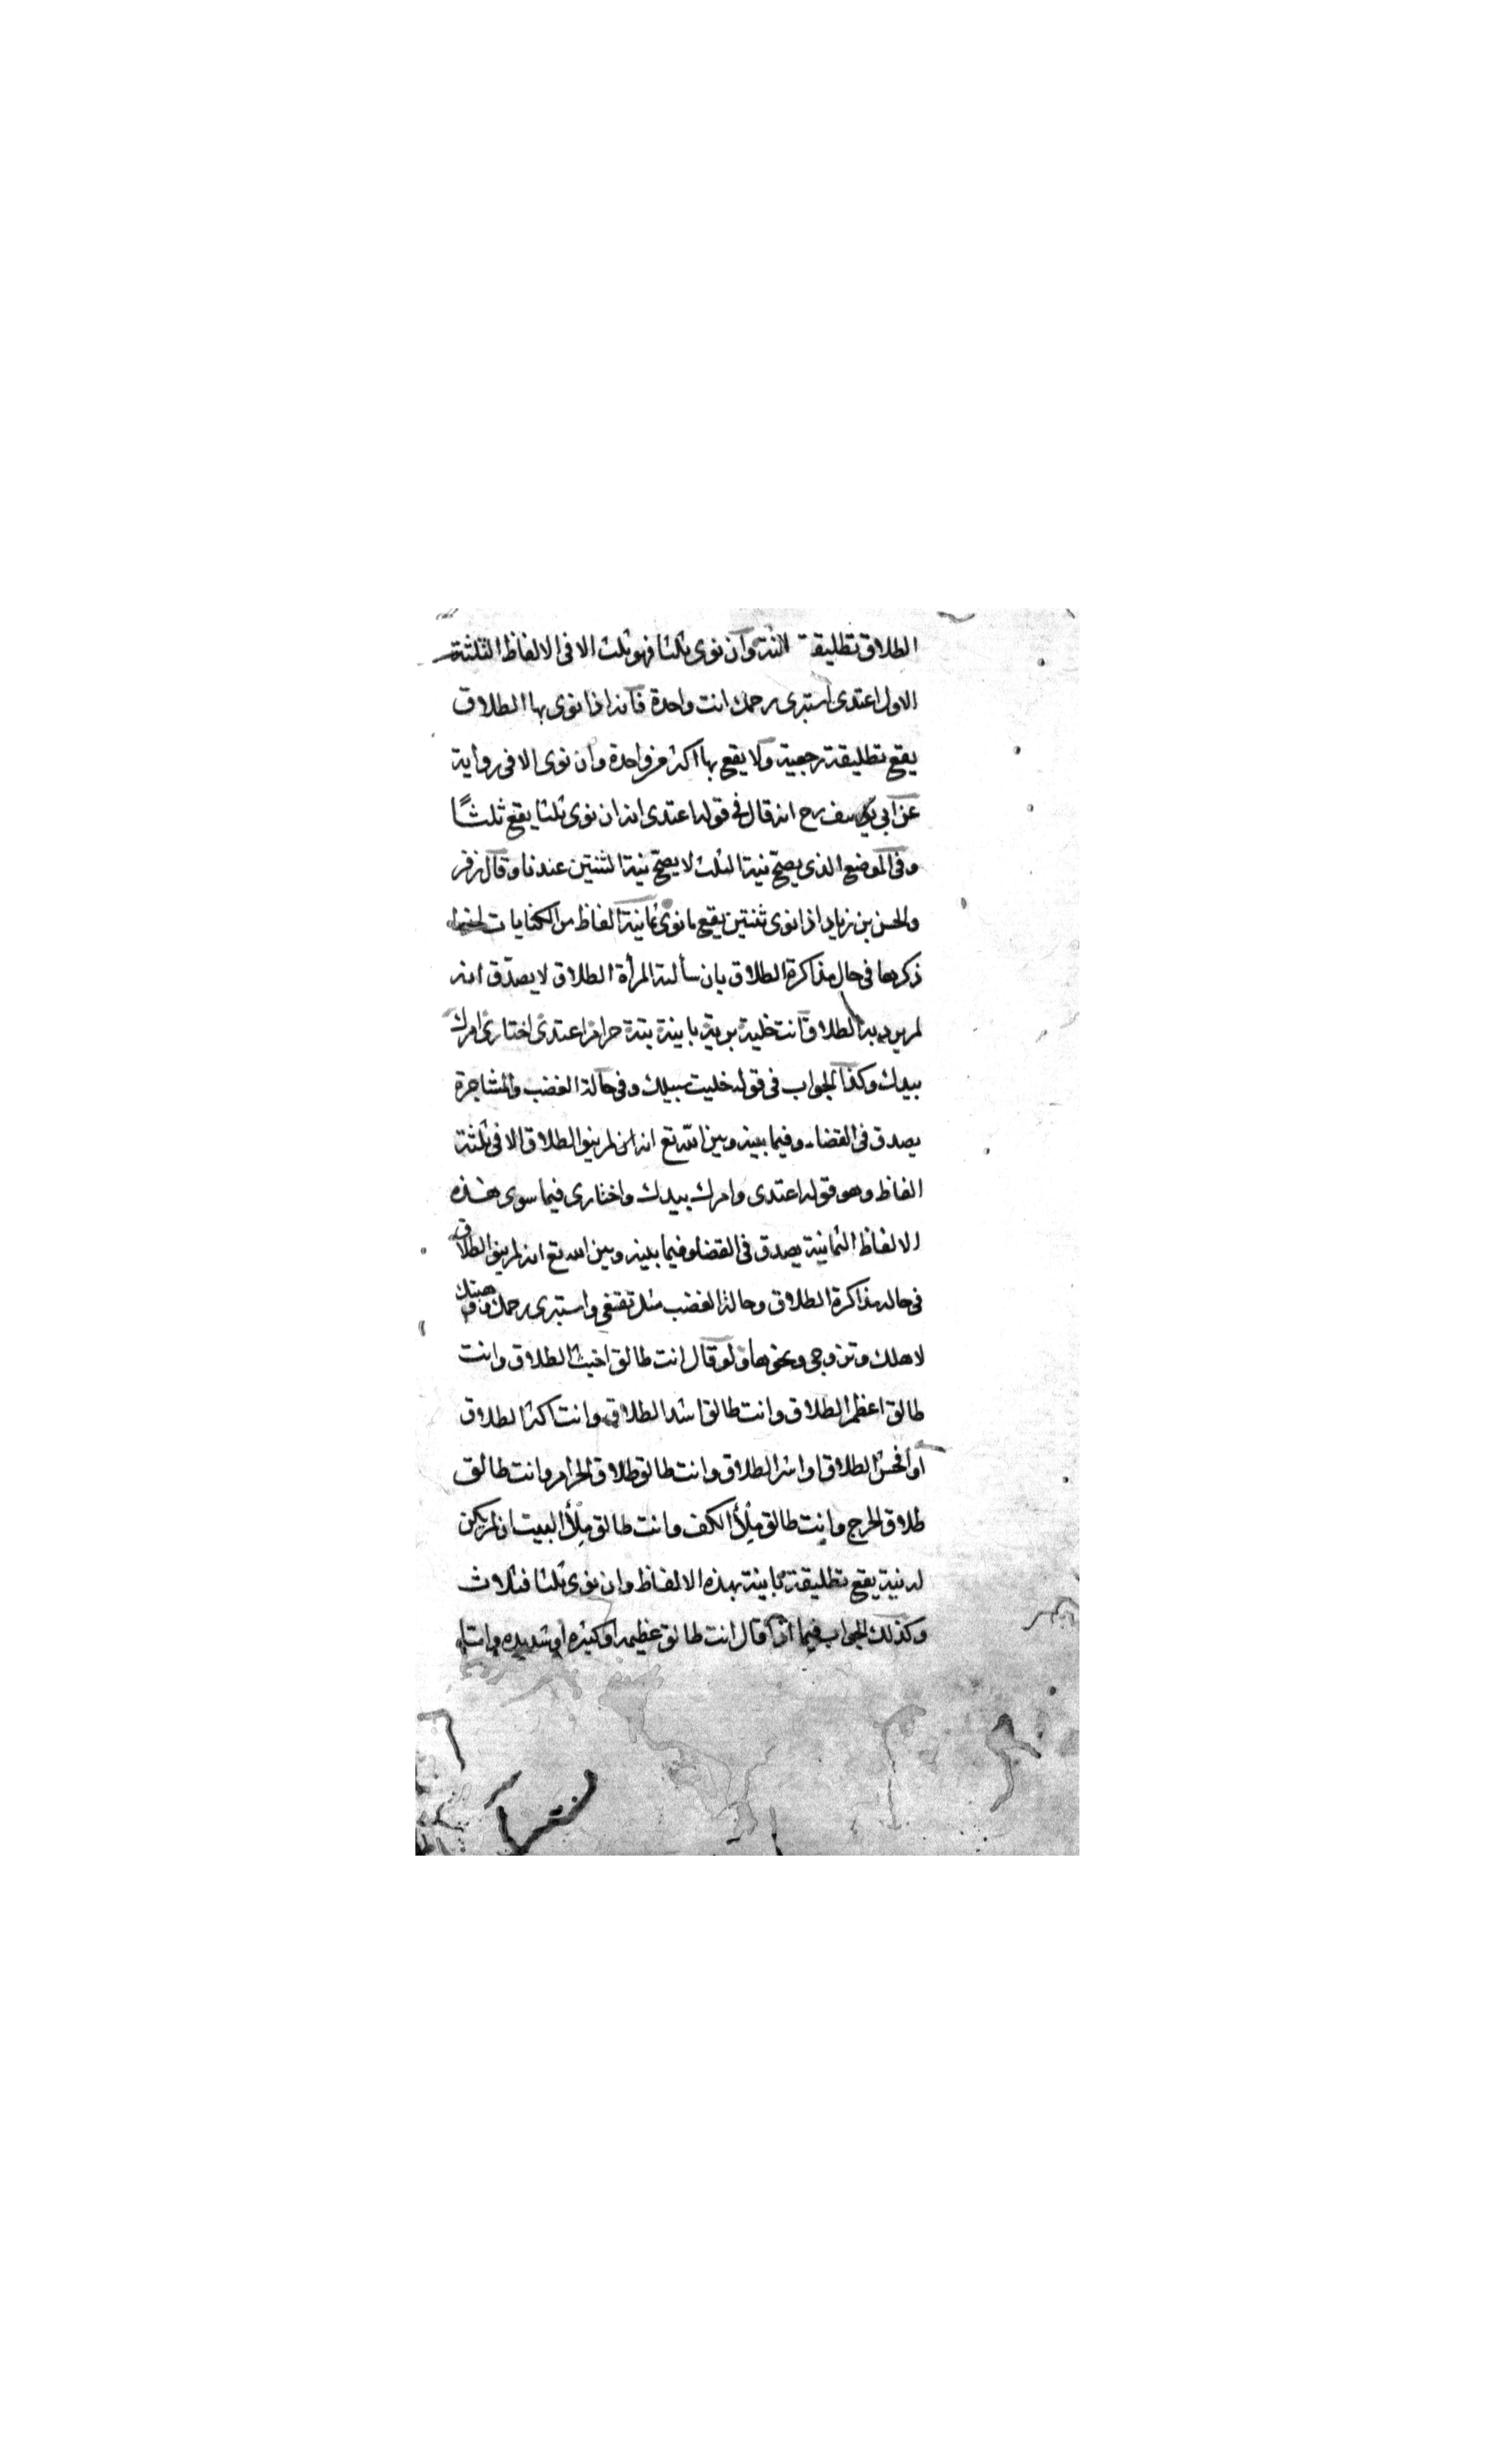 الطلاق تطليقة وان نوى ثلثا فهو ثلث الا فى الالفاظ الثلثة
الاول اعتدى استبرى رحمك انت واحدة فانه اذا نوى بها الطلاق
يقع تطليقة رجعية ولا يقع بها اكثر من واحدة وان نوى الا فى رواية
عن ابي يوسف رح انه قال فى قوله اعتدى انه ان نوى ثلثا يقع ثلثًا
وفى الموضع الذى يصحّ نية الثلث لا يصحّ نية الثنتين عندنا وقال زفر
والحسن بن زياد اذا نوى ثنتين يقع ما نوى ثمانية الفاظ من الكنايات
ذكرها فى حال مذاكرة الطلاق بان سألته المرأة الطلاق لا يصدّق انه
لم يرد به الطلاق انت خلية برية باينة بتة حرام اعتدى اختارى امرك
بيدك وكذا الجواب فى قوله خليت سبيلك وفى حالة الغضب والمشاجرة
يصدق فى القضاء وفيما بينه وبين الله تع انه لم ينو الطلاق الا فى ثلثة
الفاظ وهو قوله اعتدى وامرك بيدك واختارى فيما سوى هذه
الالفاظ الثمانية يصدق فى القضا وفيما بينه وبين الله تع انه لم ينو الطلاق
فى حالة مذاكرة الطلاق وحالة الغضب مثل تقنعى واستبرى رحمك وهبتك
لاهلك وتزوجى ونحوها ولو قال انت طالق اخبث الطلاق وانت
طالق اعظم الطلاق وانت طالق اشد الطلاق وانت اكثر الطلاق
او افحش الطلاق او اشر الطلاق وانت طالق طلاق الحرام وانت طالق
طلاق الحرج وانت طالق ملأ الكف وانت طالق ملأ البيت ان لم يكن
له نية يقع تطليقة باينة بهذه الالفاظ وان نوى ثلثا فثلاث
وكذلك الجواب فيما اذا قال انت طالق عظيمه او كبيره او شديده